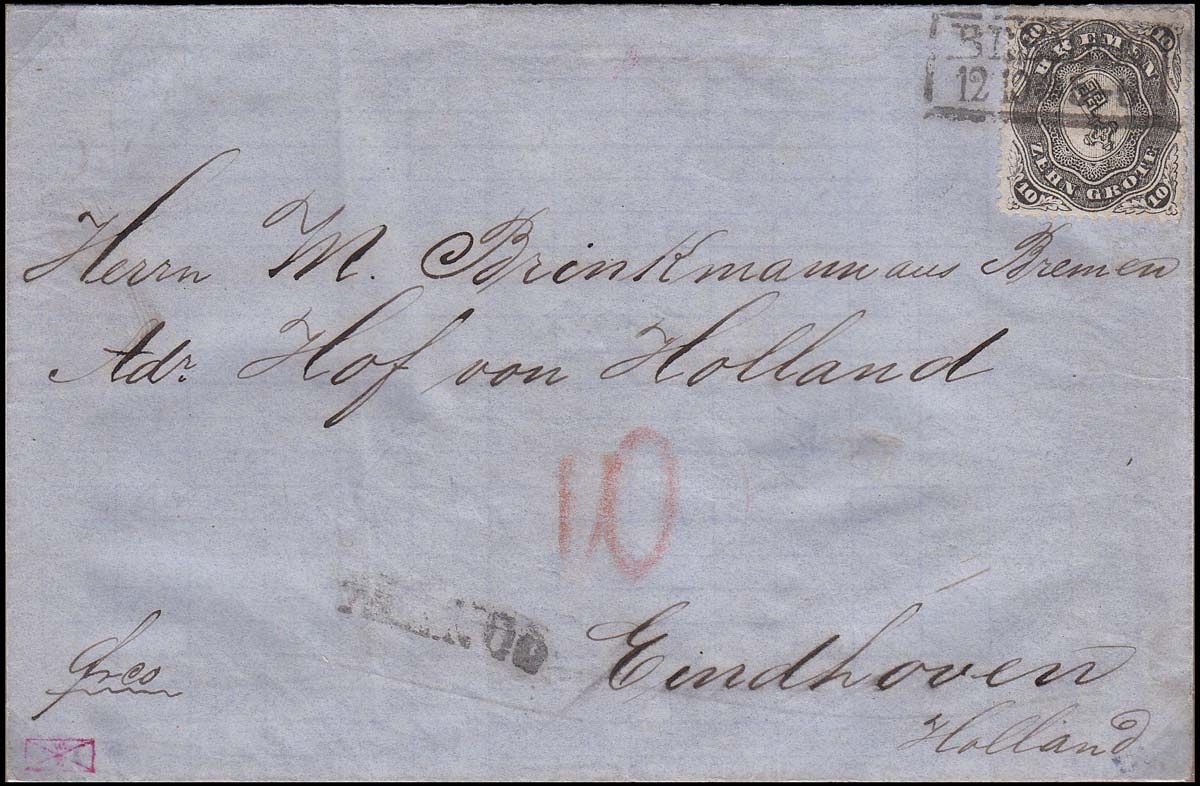 10 BREMEN 10
12 12
10 ZEHN GROTE 10
Herrn M. Brinkmann aus Bremen
Adr. Hof von Holland
10
FRANCO
Eindhoven
frco
Holland